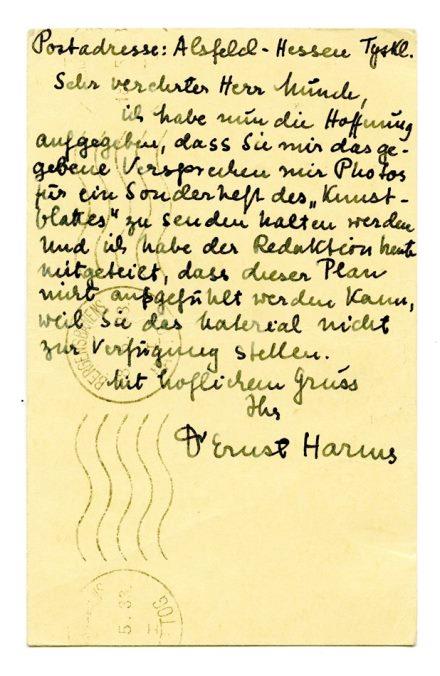 Postadresse: Alsfeld-Hessen Tyskl.
Sehr verehrter Herr Munch,
ich habe nun die Hoffnung
aufgegeben, dass Sie mir das ge-
gebene Versprechen mir Photos
für ein Sonderheft des „Kunst-
blattes" zu senden halten werden
und ich habe der Redaktion heute
mitgeteilt, dass dieser Plan
nicht ausgeführt werden kann,
weil Sie das Material nicht
zur Verfügung stellen.
Mit höflichem Gruss
Ihr
Dr Ernst Harms
BERGENSBANENS
5.33
TOG